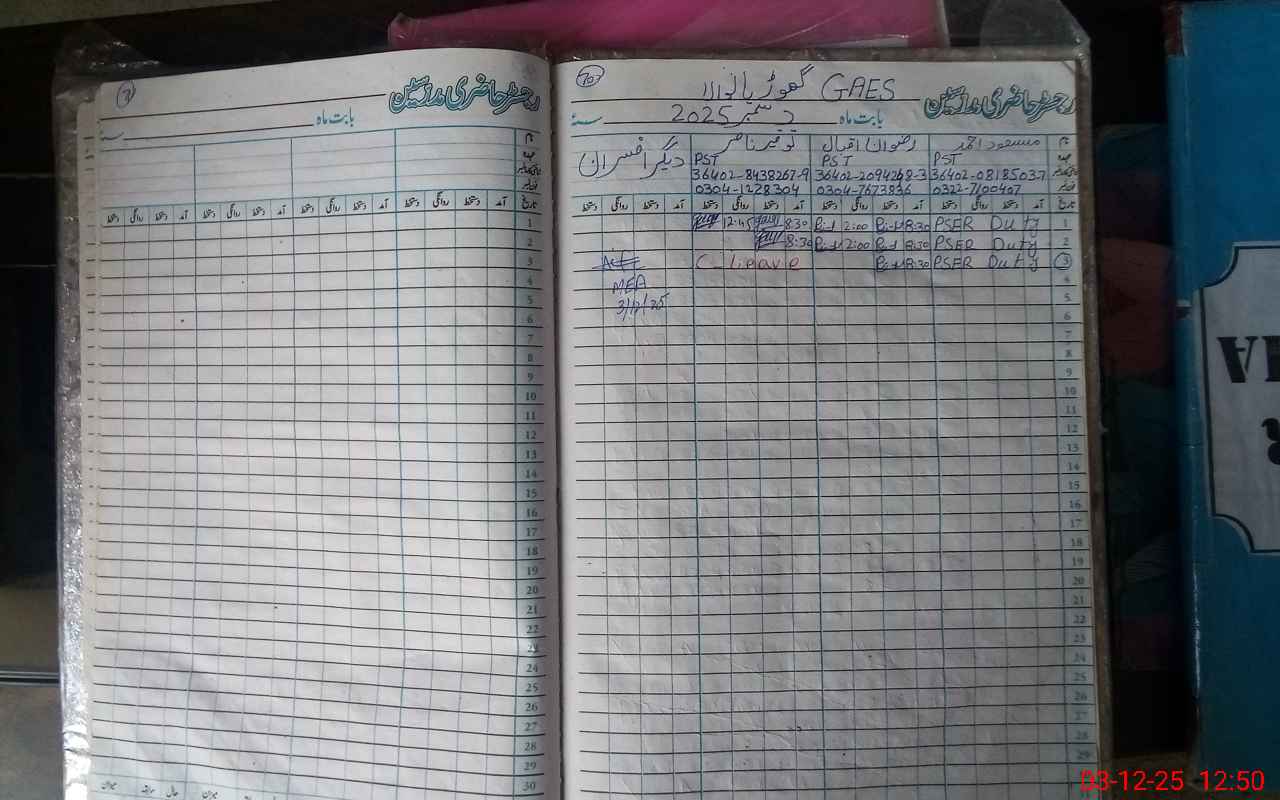 7
رجسٹر حاضری مدرسین
بابت ماہ
سنہ
تاریخ آمد دستخط روانگی دستخط آمد دستخط روانگی دستخط آمد دستخط روانگی دستخط آمد دستخط روانگی دستخط
1
2
3
4
5
6
7
8
9
10
11
12
13
14
15
16
17
18
19
20
21
22
23
24
25
26
27
28
29
30
میزان سابقہ حال میزان
10
GAES گھوڑیانوالا
رجسٹر حاضری مدرسین
بابت ماہ دسمبر 2025 سنہ
نام مسعود احمد رضوان اقبال توقیر ناصر دیگر افسران
عہدہ PST PST PST
36402-0818503-7 36402-2094248-3 36402-8438267-9
فون نمبر 0322-7100407 0304-7673836 0304-1228304
تاریخ آمد دستخط روانگی دستخط آمد دستخط روانگی دستخط آمد دستخط روانگی دستخط آمد دستخط روانگی دستخط
1 PSER Duty 8:30 2:00 8:30 12:45
2 PSER Duty 8:30 2:00 8:30
3 PSER Duty 8:30 C-lieave
4 MEA
5 3/12/25
6
7
8
9
10
11
12
13
14
15
16
17
18
19
20
21
22
23
24
25
26
27
28
29
03-12-25 12:50